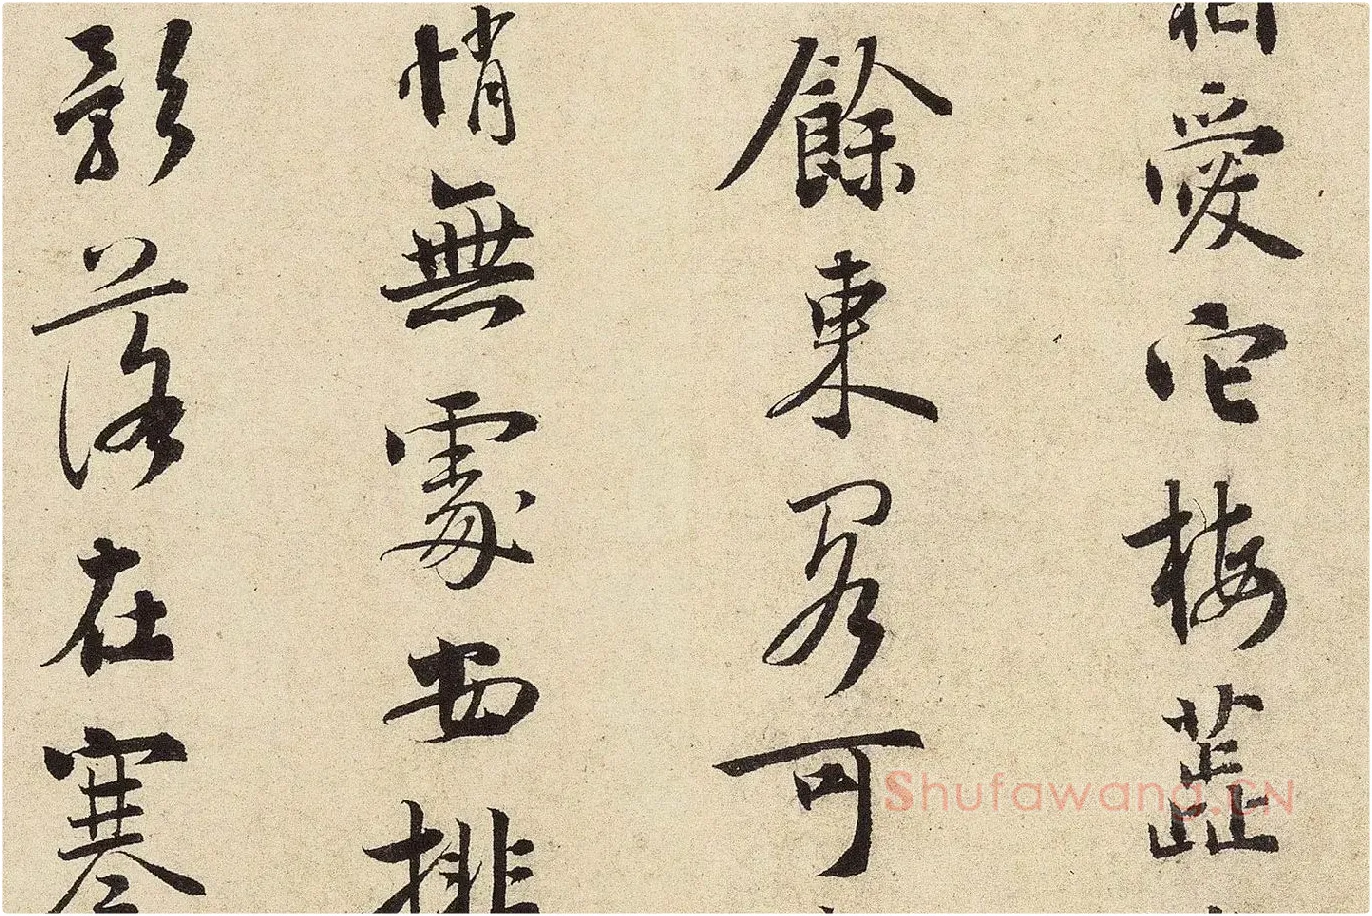 愛它梅蕋
餘東閣可
悄無處安排
影落在寒
Shufawang.CN